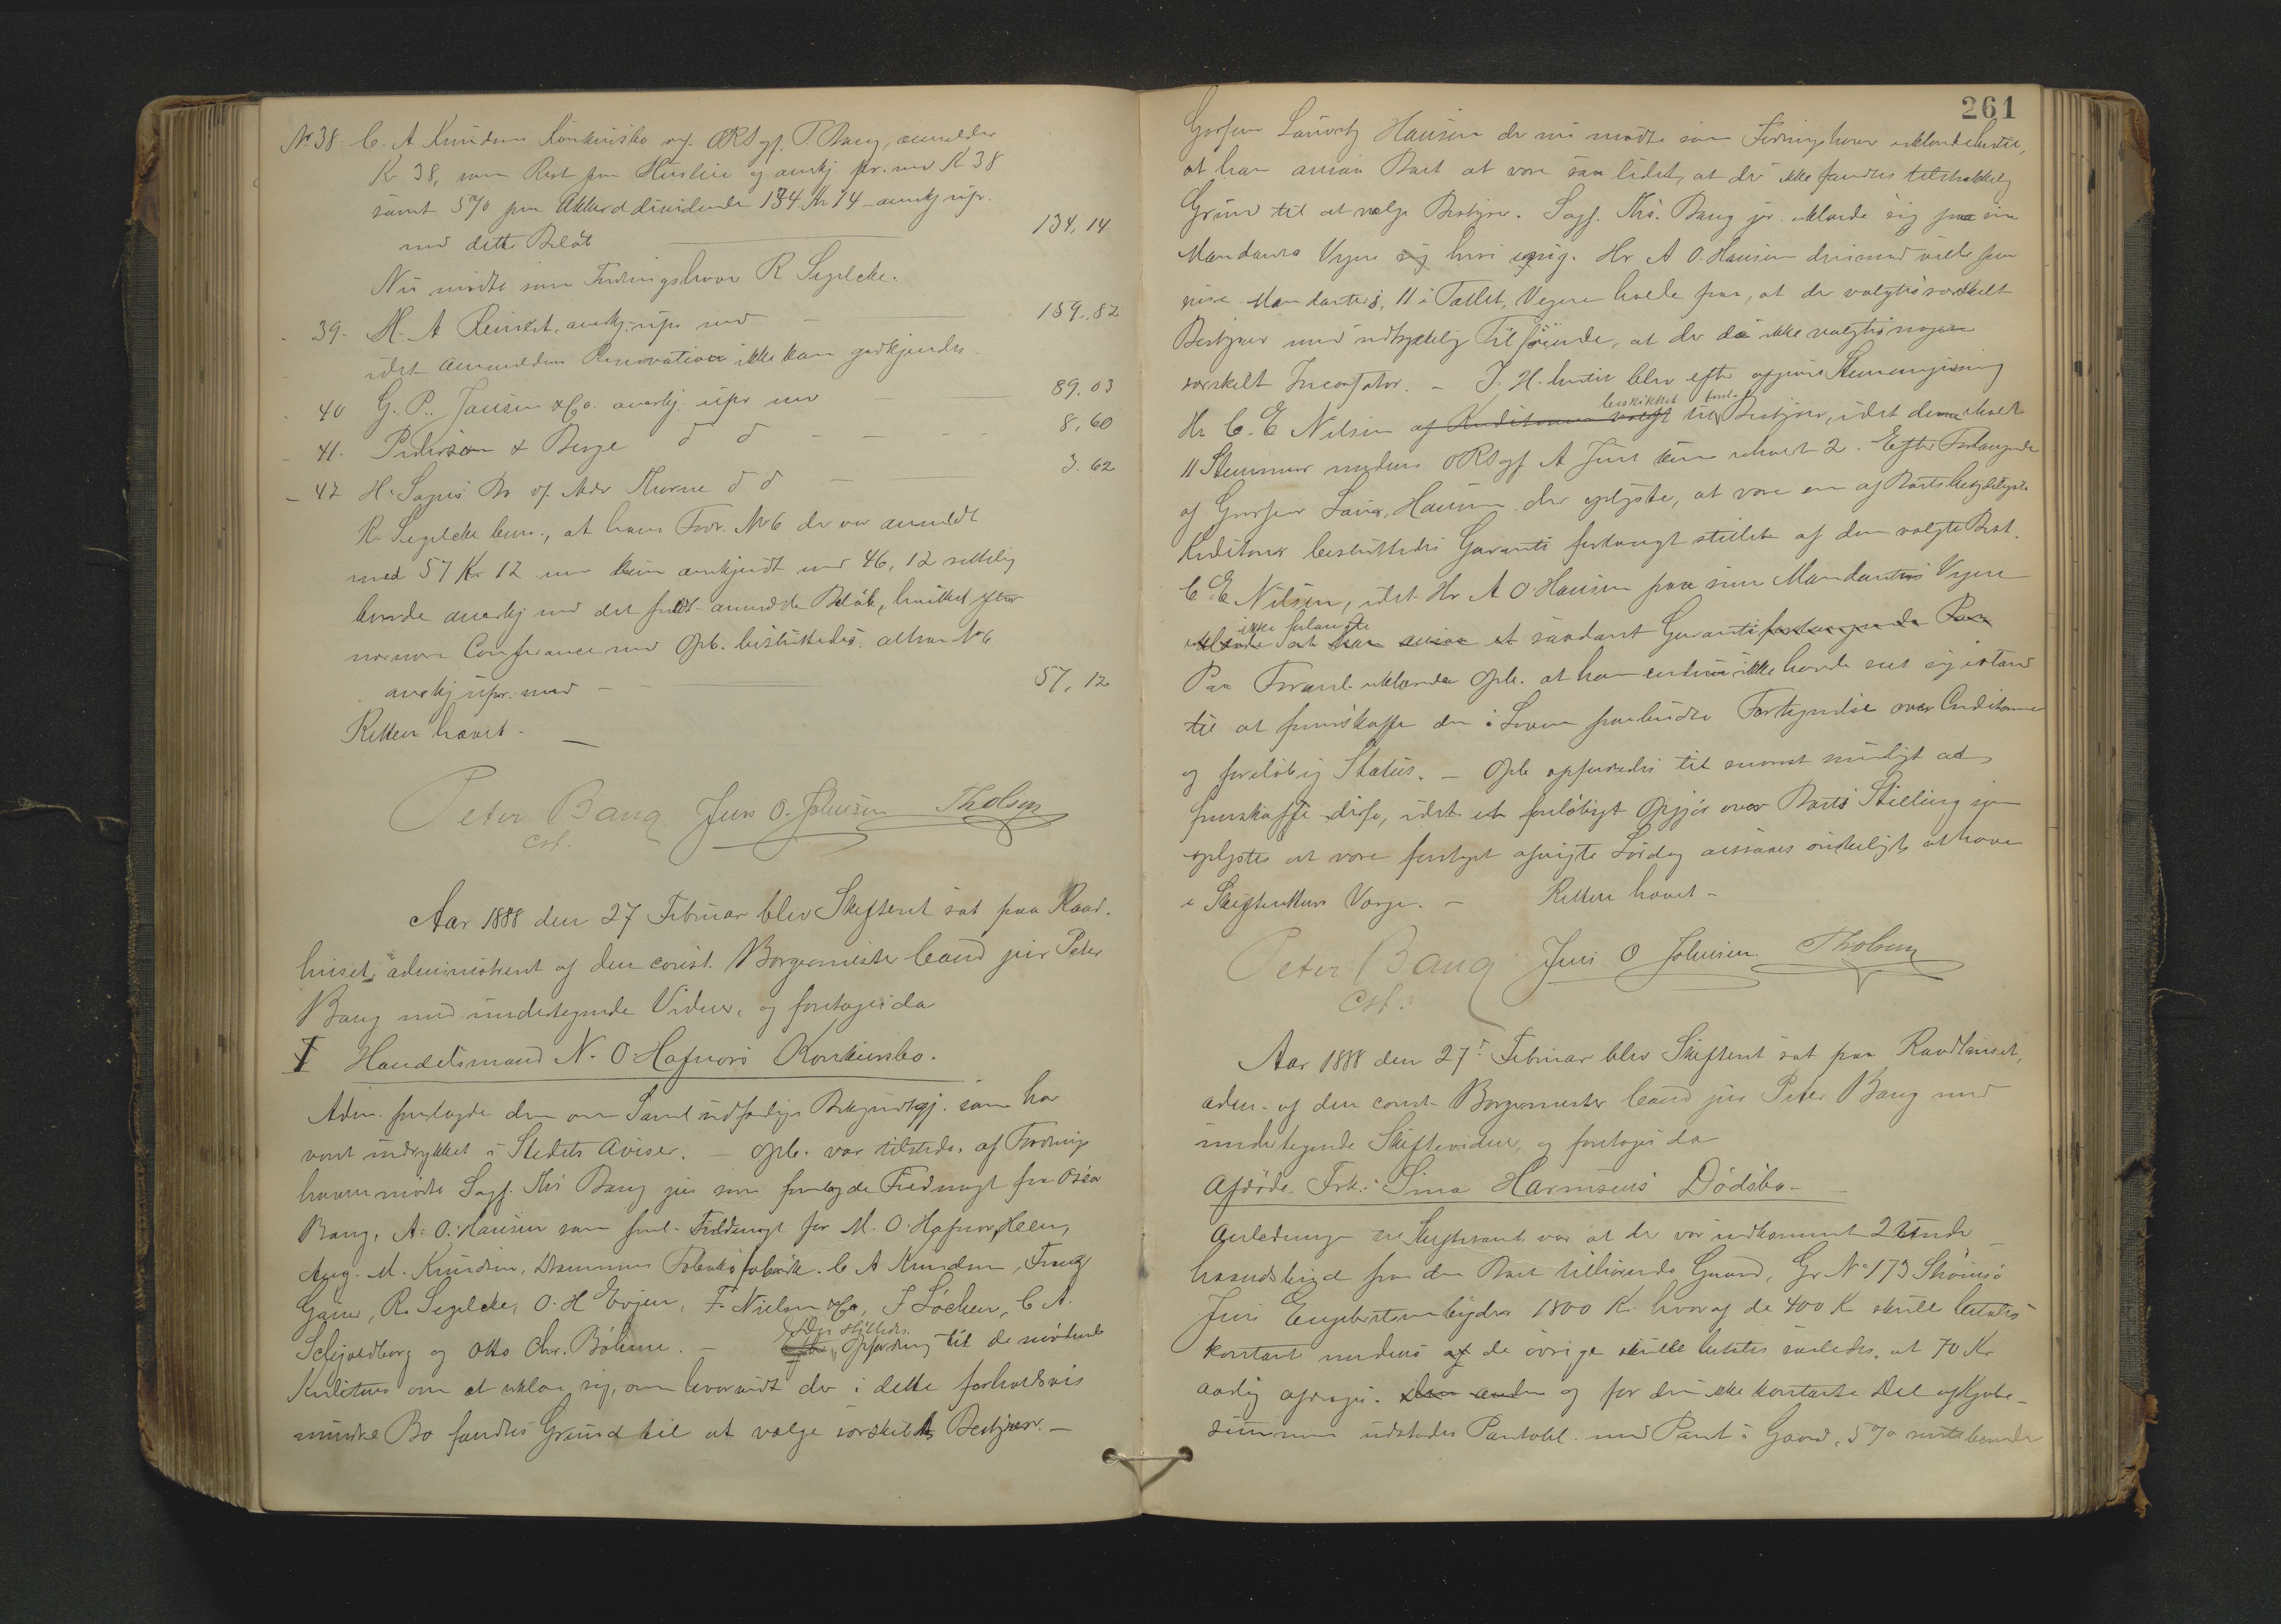 No 38. C. A Knudsens Konkursbo v/ ORSgf. P. Bang, anmelder
Kr 38, som Rest paa Husleie og anerkj. pr. med Kr 38
samt 5% paa Akkorddividende 134 Kr 14 - anerkj upr.
med dette Beløb 134,14
Nu mødte som Fordringshaver R Segelcke.
39. H. A Reinert, anerkj. upr. med 159.82
idet anmeldt Renovation ikke kan godkjendes.
40 G. P. Jansen & Co. anerkj. upr med 89,03
41. Pedersen & Berge d d 8,60
42 H. d d 3.62
R Segelcke bem., at hans Fordr. No 6 der var anmeldt
med 57 Kr 12 men kun anerkjendt med 46,12 rettelig
burde anerkj med det fuldt anmeldte Beløb, hvilket efter
nærmere Conference med Opb. besluttedes, at No 6
anerkj upr. med 57,12
Retten hævet.
Peter Bang Jens O. Johnsen Tholsen
cst.
Aar 1888 den 27 Februar blev Skifteret sat paa Raad-
huset, administreret af den const. Borgermester Cand jur Peter
Bang med undertegnede Vidner, og foretoges da
I Handelsmand N. O Hafnors Konkursbo.
Adm. fremlagde den om Samlingen udfærdige Bekjendtgj. som har
været indrykket i Stedets Aviser. - Opb. var tilstede, af Fordrings
havere mødte Sagf. Ths Bang jur som fremlagde Fuldmagt fra
Bang, A. O. Hansen som freml. Fuldmagt for M. O. Hafnor, Heen,
Aug. M. Knudsen, Drammens Tobaksfabrik. C A Knudsen, Franz
R. Segelcke, O. H Evjen, F. Nielsen & Co, J Løchen, C A.
Schjoldborg og Otto Chr. Bøhme. - Der stilledes
Efter Opfordring til de mødende
Kreditorer om at erklære sig, om hvorvidt der i dette forholdsvis
mindre Bo fandtes Grund til at vælge særskilt Bestyrer. -
261
Grosserer Lauritz Hansen der nu mødte som Fordringshaver erklærede hertil,
at han ansaa Boet at være saa lidet, at der ikke fandtes tilstrækkelig
Grund til at vælge Bestyrer. Sagf. Ths. Bang jr. erklærede sig paa sine
Mandanters Vegne sig heri enig. Hr A O. Hansen derimod vilde paa
sine Mandanters, 11 i Tallet, Vegne holde paa, at der valgtes særskilt
Bestyrer med udtrykkelig Tilføiende, at der da ikke valgtes nogen
særskilt Incassator. - I H. hertil blev efter afgiven Stemmegivning
beskikket
Hr C. E Nilsen af Kreditorerne valgt til Bestyrer, idet denne erholdt
11 Stemmer medens ORSgf A Juel kun erholdt 2. Efter Forlangende
af Grosserer Laur. Hansen, der oplyste, at være en af Boets betydeligste
Kreditorer besluttedes Garanti forlangt stillet af den valgte Best.
C E Nilsen, idet Hr A O Hansen paa sine Mandanters Vegne
ikke forlangte
erklærede at han ansaa et saadant Garanti
Paa Foranl. erklærede Opb. at han endnu ikke havde seet sig istand
til at fremskaffe den i Loven paabudte Fortegnelse over Creditorerne
og foreløbig Status. - Opb opfordredes til snarest muligt at
fremskaffe disse, idet et foreløbigt Opgjør over Boets Stilling som
oplystes at være foretaget afvigte Lørdag ansaaes ønskeligt at have
i Skifterettens Værge. - Retten hævet -
Peter Bang Jens O Johnsen Tholsen
cst.
Aar 1888 den 27 Februar blev Skifteret sat paa Raadhuset,
adm. af den const. Borgermester Cand jur Peter Bang med
undertegnede Skiftevidner, og foretoges da
Afdøde Frk. Sina Harmsens Dødsbo -
Anledningen til Skifteret var at der var indkommet 2 Under
haandsbud paa den Boet tilhørende Gaard, Gr No 173 Strømsø
Jens Engebretsen byder 1800 Kr. hvoraf de 400 Kr skulle betales
kontant medens af de øvrige skulle betales saaledes, at 70 Kr
aarlig afdrages. den anden og for den ikke kontante Del af Kjøbe-
summen udstedes Pantobl. med Pant i Gaard, 5% rentebærende